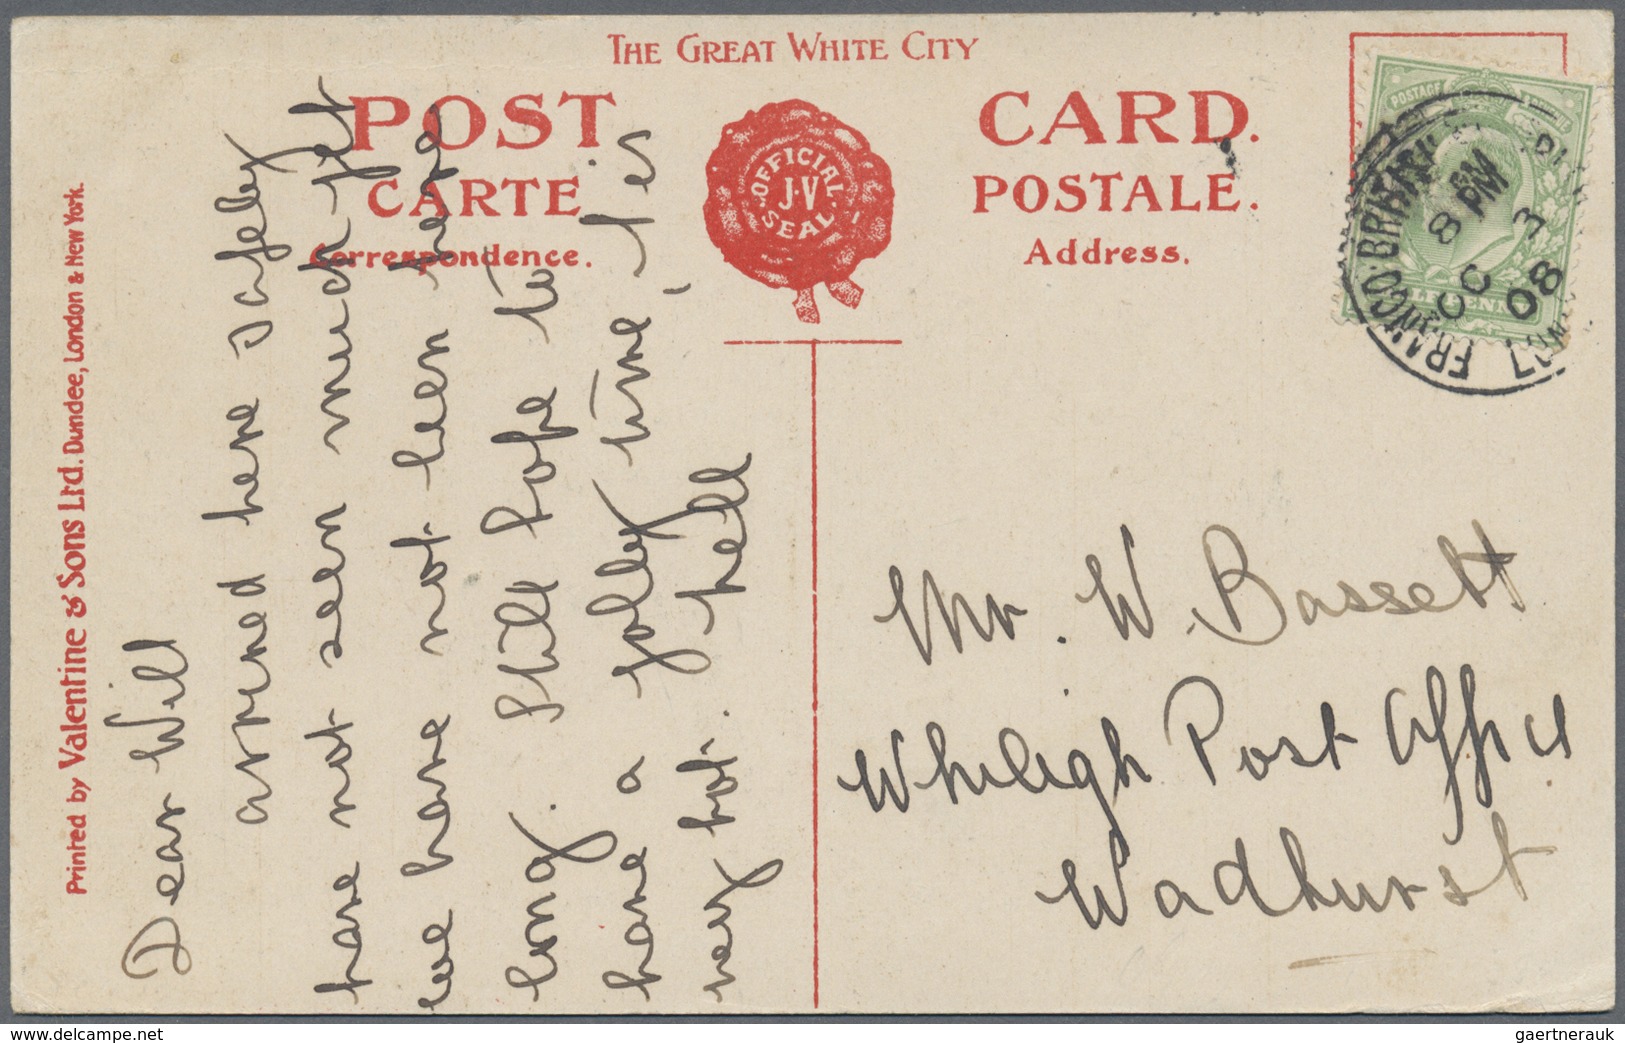 THE GREAT WHITE CITY
POST CARD.
CARTE POSTALE.
Correspondence.
Address.
OFFICIAL
J-V
SEAL
Printed by Valentine & Sons Ltd. Dundee, London & New York.
Dear Will
arrived here safely
have not seen much yet
we have not been here
long. Still hope to
have a jolly time, 'tis
very hot. Nell
Mr. W. Bassett
Whiligh Post Office
Wadhurst
POSTAGE
FRANCO. BRITISH
8 PM
OC 3
08
delcampe.net
gaertnerauk